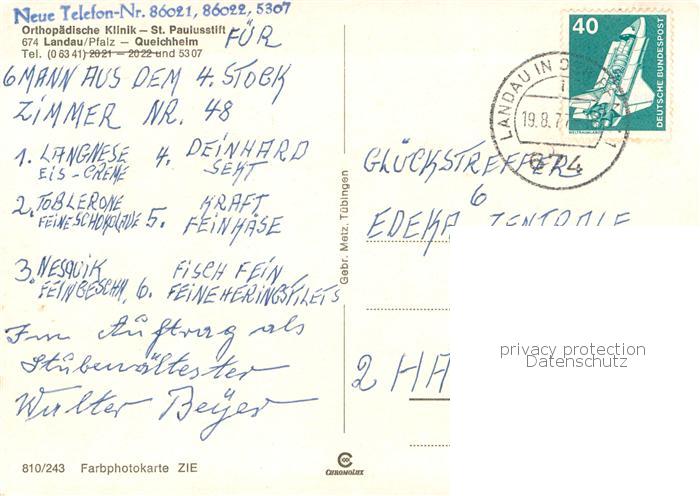 Neue Telefon-Nr. 86021, 86022, 5307
Orthopädische Klinik — St. Paulusstift
674 Landau/Pfalz — Queichheim
Tel. (0 63 41) 2021 – 2022 und 53 07
FÜR
6 MANN AUS DEM 4. STOCK
ZIMMER NR. 48
1. LANGNESE
EIS-CREME
4. DEINHARD
SEKT
2. TOBLERONE
FEINE SCHOKOLADE
5. KRAFT
FEINKÄSE
3. NESQUIK
FEINGESCHM.
6. FISCH FEIN
FEINE HERINGSFILETS
Im Auftrag als
Stubenältester
Walter Beyer
810/243 Farbphotokarte ZIE
Gebr. Metz, Tübingen
CHROMOLUX
40
DEUTSCHE BUNDESPOST
WELTRAUMLABOR
LANDAU IN
19.8.77
674
GLÜCKSTREFFER
6
EDEKA ZENTRALE
2 HA
privacy protection
Datenschutz